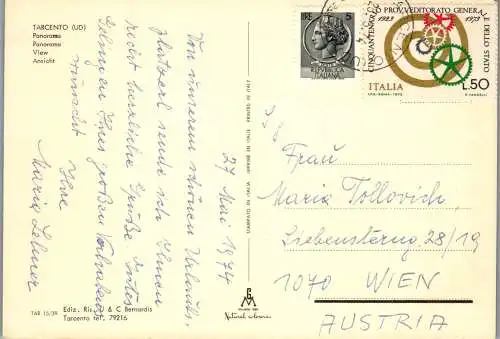 TARCENTO (UD)
Panorama
Panorama
View
Ansicht
27 Mai 1974
Von unserem schönen Urlaubs-
platzerl sende ich Ihnen
recht herzliche Grüße. Gutes
Gelingen Ihres großen Vorhabens
wünscht Ihre
Maria Lehner
TAR 15/39 Ediz. Ris. D & C Bernardis
Tarcento tel. 79216
LIRE 5
REPUBBLICA
ITALIANA
CINQUANTENARIO PROVVEDITORATO GENERALE DELLO STATO
1923 1973
ITALIA L.50
Frau
Maria Tollovich
Liebensterng. 28/19
1070 WIEN
AUSTRIA